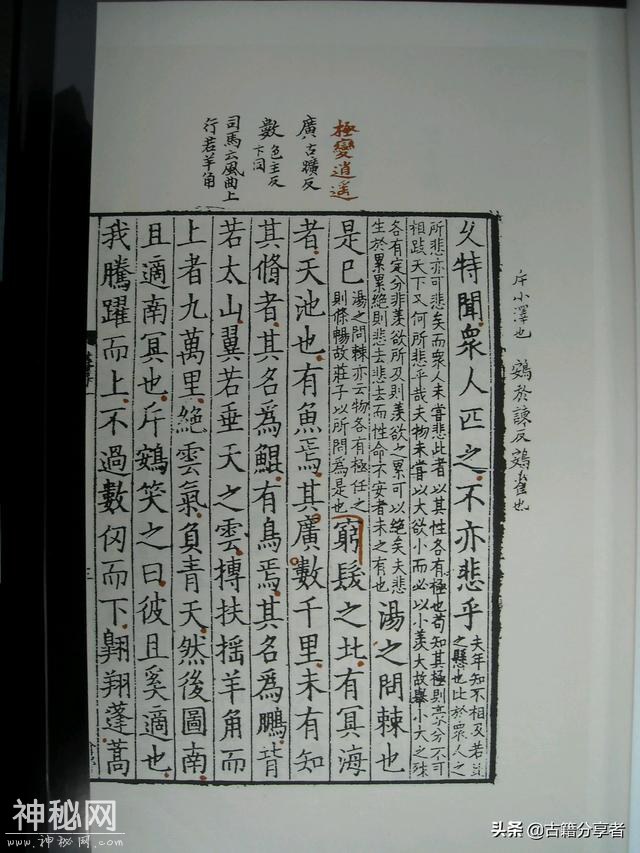 斥小澤也 鴳於諫反鴳雀也
極變逍遥
廣古曠反
數色主反
下同
司馬云風曲上
行若羊角
乆特聞衆人匹之不亦悲乎
夫年知不相及若此
之懸也比於衆人之
所悲亦可悲矣而衆人未甞悲此者以其性各有極也苟知其極則毫分不可
相跂天下又何所悲乎哉夫物未甞以大欲小而必以小羡大故舉小大之殊
各有定分非羡欲所及則羡欲之累可以絶矣夫悲
生於累累絶則悲去悲去而性命不安者未之有也
湯之問棘也
是已
湯之問棘亦云物各有極任之
則條暢故莊子以所問爲是也
窮髮之北有冥海
者天池也有魚焉其廣數千里未有知
其脩者其名爲鯤有鳥焉其名爲鵬背
若太山翼若垂天之雲摶扶揺羊角而
上者九萬里絶雲氣負青天然後圖南
且適南冥也斥鴳笑之曰彼且奚適也
我騰躍而上不過數仞而下翺翔蓬蒿
神秘网
www.神秘网.com
头条 @古籍分享者